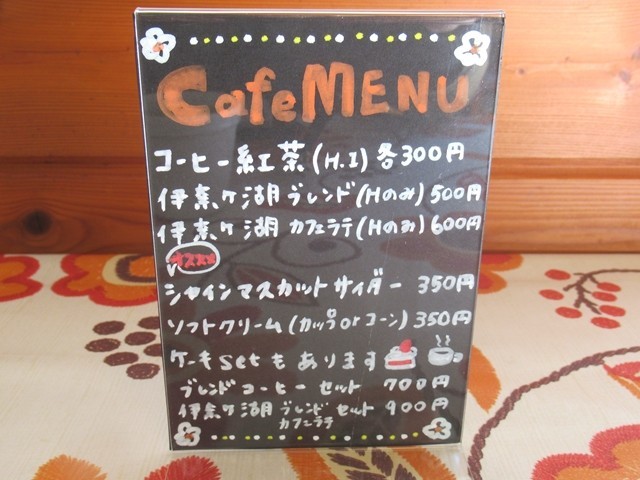 Cafe MENU
コーヒー紅茶(H.I)各300円
伊奈ヶ湖ブレンド(Hのみ)500円
伊奈ヶ湖カフェラテ(Hのみ)600円
オススメ
シャインマスカットサイダー 350円
ソフトクリーム(カップorコーン)350円
ケーキsetもあります
ブレンドコーヒーセット 700円
伊奈ヶ湖ブレンドセット 900円
カフェラテ